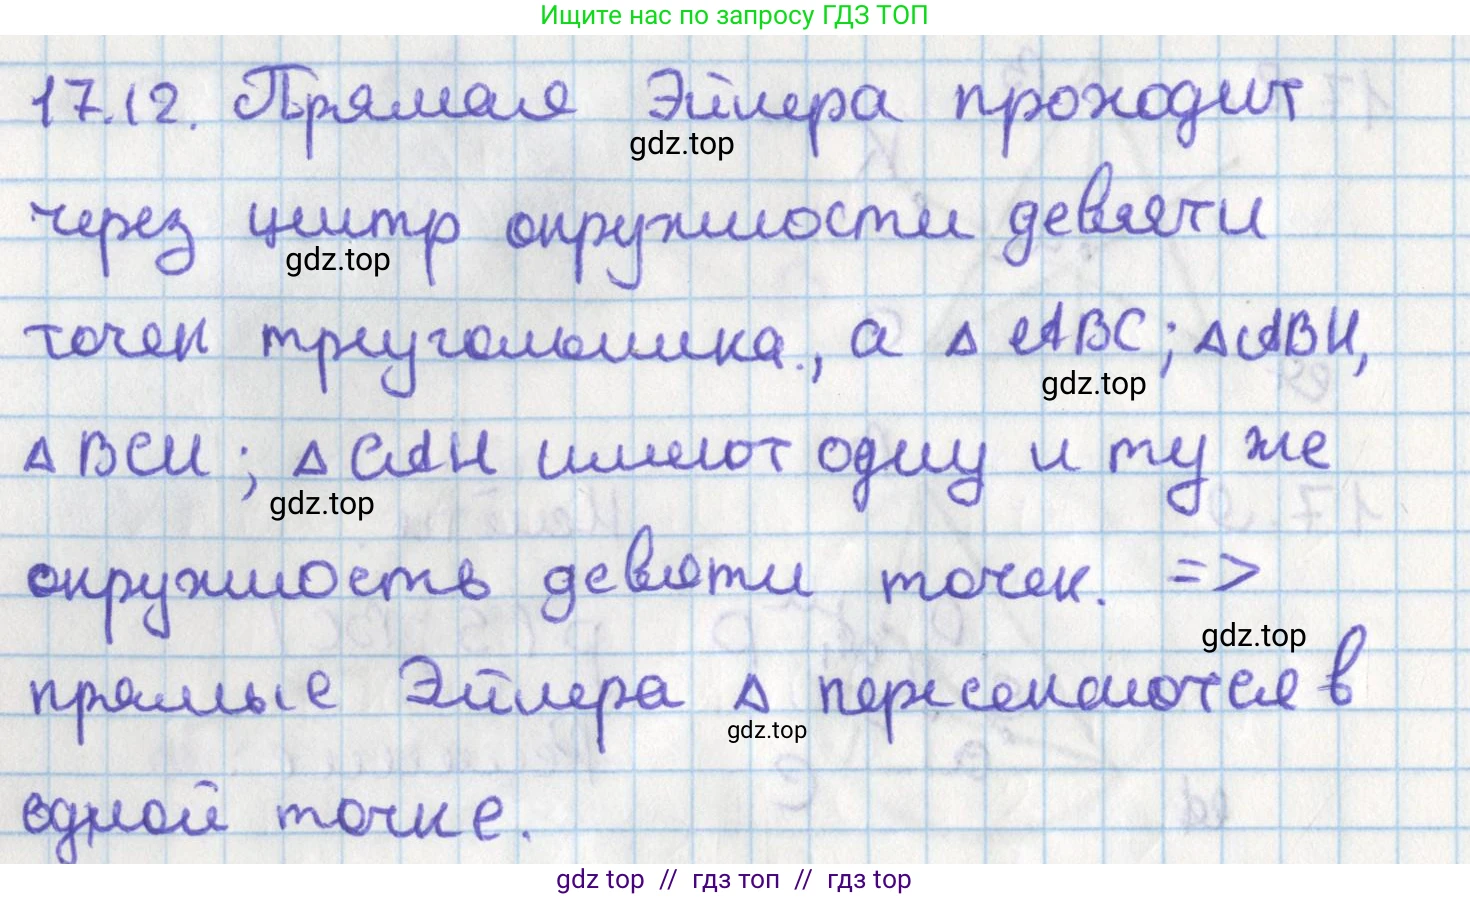 Ищите нас по запросу ГДЗ ТОП
17.12. Прямая Эйлера проходит
gdz.top
через центр окружности девяти
gdz.top
точек треугольника., а △ ABC; △ABH,
gdz.top
△ BCH; △ CAH имеют одну и ту же
gdz.top
окружность девяти точек. =>
gdz.top
прямые Эйлера △ пересекаются в
gdz.top
одной точке.
gdz top // гдз топ // гдз top